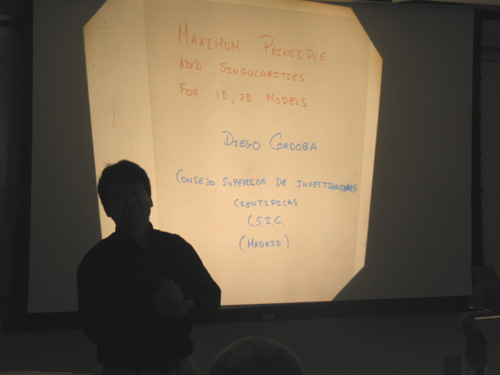 MAXIMUM PRINCIPLE
AND SINGULARITIES
FOR 1D, 2D MODELS
DIEGO CORDOBA
CONSEJO SUPERIOR DE INVESTIGACIONES
CIENTIFICAS
C.S.I.C.
(MADRID)